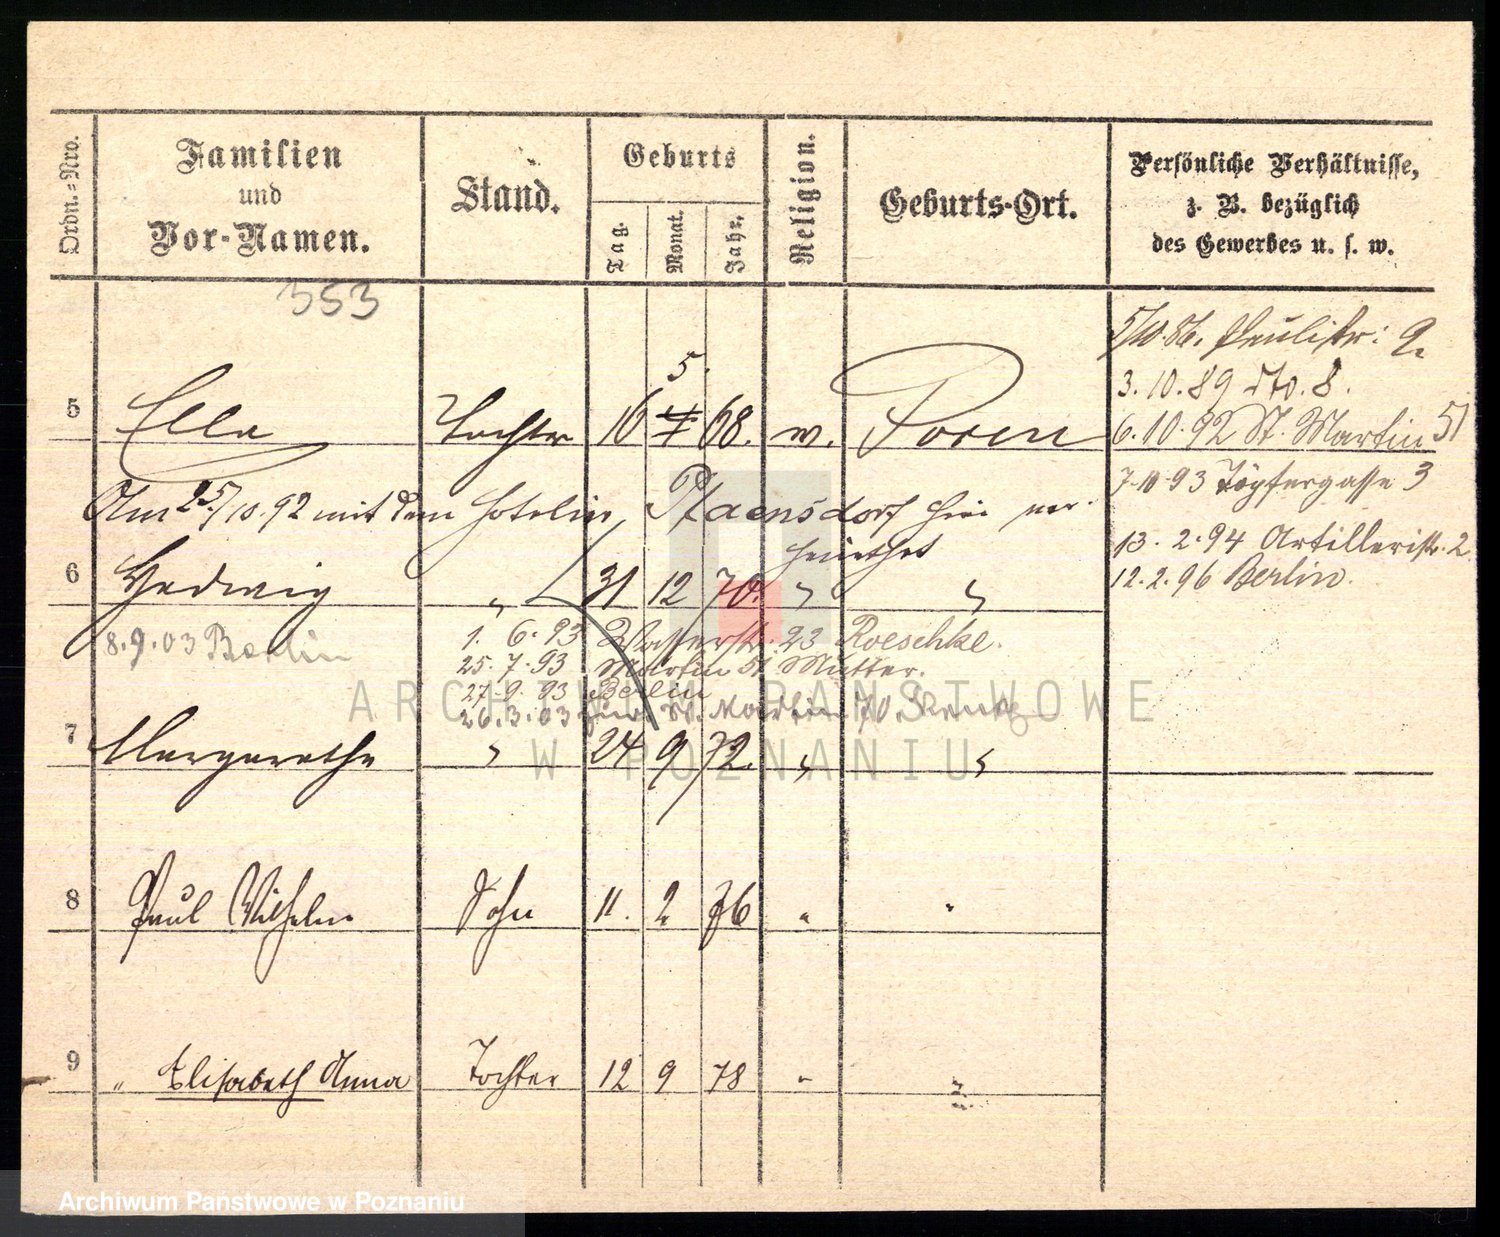 Ordn.=Nro.
Familien
und
Vor-Namen.
Stand.
Geburts
Tag.
Monat.
Jahr.
Religion.
Geburts-Ort.
Persönliche Verhältnisse,
z. B. bezüglich
des Gewerbes u. s. w.
353
5/10.86. Paulistr: 9.
3.10.89 dto. 8.
5.
5 Ella Tochter 16 68. ev. Posen
6.10.92 St. Martin 51
7.10 93 Töpfergasse 3
Am 25/10.92 mit dem Hotelier, hier ver-
heirathet
13. 2.94 Artilleriestr. 2
12.2.96 Berlin.
6 Hedwig " 31 12 70. " "
8.9.03 Berlin
1. 6. 93 Wasserstr. 23 Roeschke.
25. 7. 93 Martin 51 Mutter.
27. 9. 93 Berlin
26.3.03 St. Martin 70.
7 Margarethe " 24 9 72. " "
8 Paul Wilhelm Sohn 11. 2 76 " "
9 " Elisabeth Anna Tochter 12 9 78 " "
ARCHIWUM PAŃSTWOWE
W POZNANIU
Archiwum Państwowe w Poznaniu